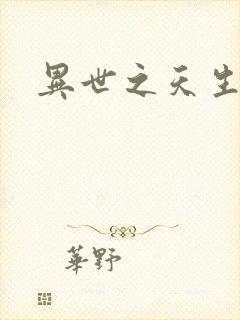 異世之天生
華野